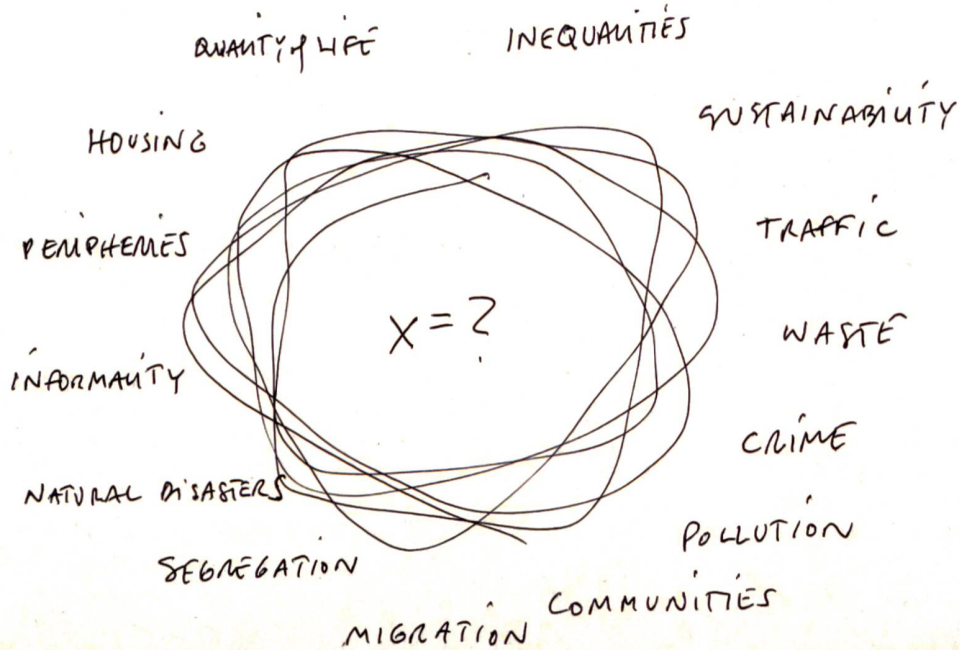 QUALITY of LIFE
INEQUALITIES
SUSTAINABILITY
HOUSING
TRAFFIC
PERIPHERIES
X = ?
WASTE
INFORMALITY
CRIME
NATURAL DISASTERS
POLLUTION
SEGREGATION
COMMUNITIES
MIGRATION